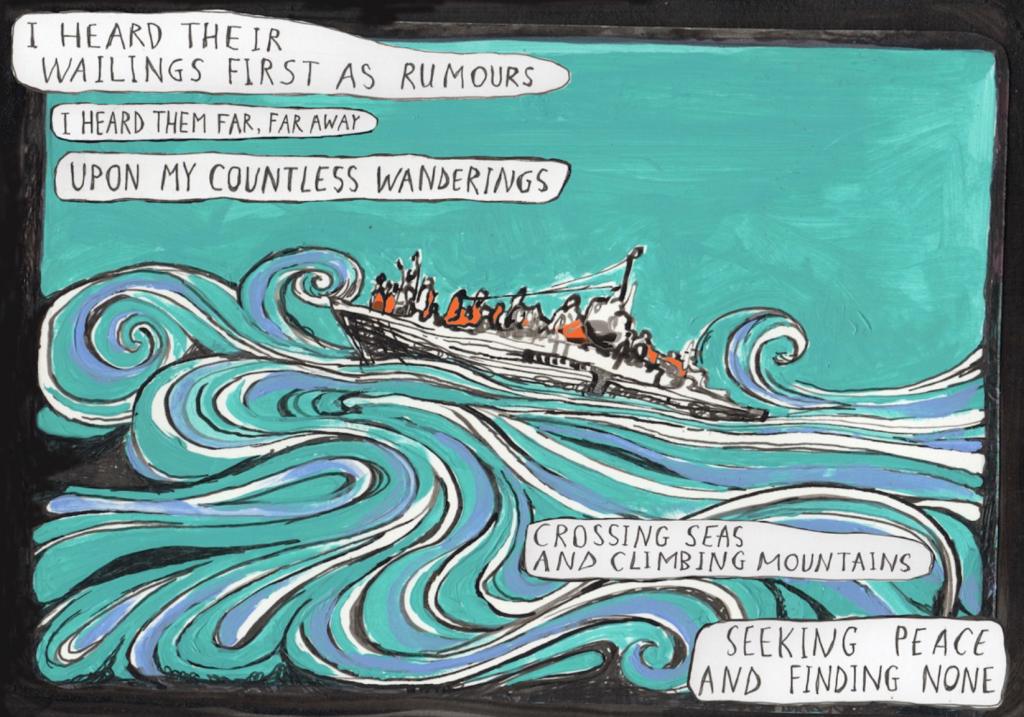 I HEARD THEIR
WAILINGS FIRST AS RUMOURS
I HEARD THEM FAR, FAR AWAY
UPON MY COUNTLESS WANDERINGS
CROSSING SEAS
AND CLIMBING MOUNTAINS
SEEKING PEACE
AND FINDING NONE